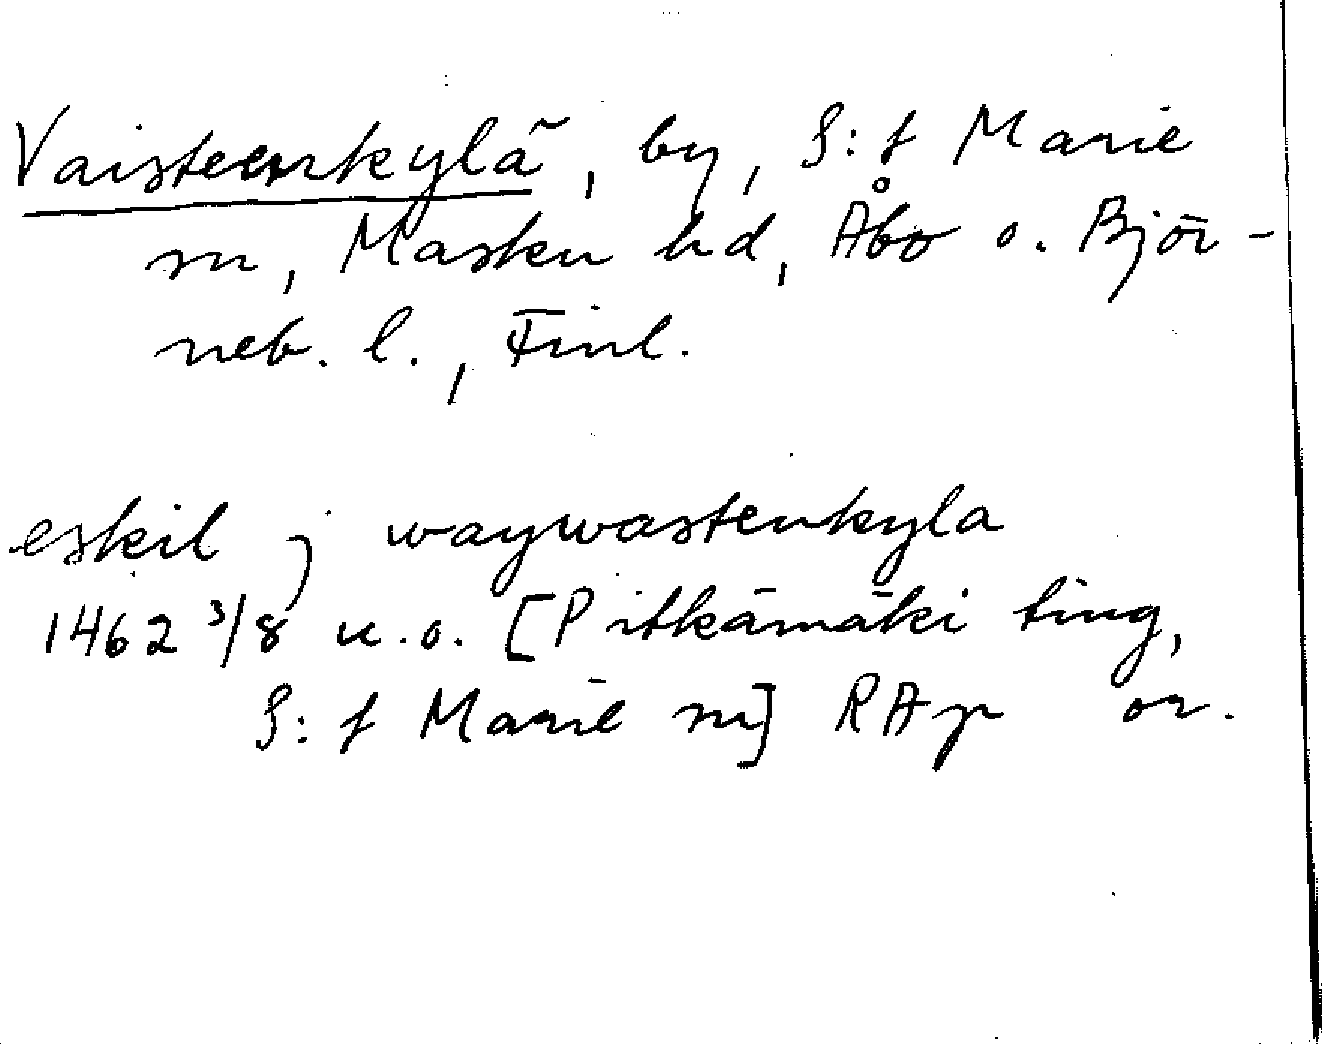 Vaisteenkylä, by, S:t Marie
sn, Masku hd, Åbo o. Björ-
neb. l., Finl.
eskil j waywastenkyla
1462 3/8 u.o. [Pitkämäki ting,
S:t Marie sn] RAp or.